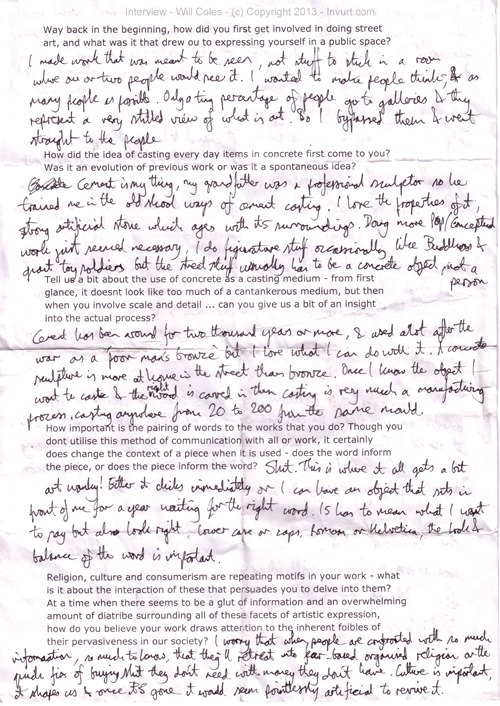 Interview - Will Coles - (c) Copyright 2013 - Invurt.com
Way back in the beginning, how did you first get involved in doing street
art, and what was it that drew ou to expressing yourself in a public space?
I made work that was meant to be seen, not stuff to stick in a room
where one or two people would see it. I wanted to make people think, & as
many people as possible. Only a tiny percentage of people go to galleries & they
represent a very stilted view of what is art. So I bypassed them & went
straight to the people
How did the idea of casting every day items in concrete first come to you?
Was it an evolution of previous work or was it a spontaneous idea?
Cement is my thing, my grandfather was a professional sculptor so he
trained me in the old skool ways of cement casting. I love the properties of it,
strong artificial stone which ages with its surroundings. Doing more Pop/Conceptual
work just seemed necessary. I do figurative stuff occassionally like Buddhas &
giant toy soldiers but the street stuff usually has to be a concrete object, not a
person
Tell us a bit about the use of concrete as a casting medium - from first
glance, it doesnt look like too much of a cantankerous medium, but then
when you involve scale and detail ... can you give us a bit of an insight
into the actual process?
Cement has been around for two thousand years or more, & used alot after the
war as a poor man's bronze but I love what I can do with it. A concrete
sculpture is more at home in the street than bronze. Once I know the object I
want to caste & the right word is carved in then casting is very much a manufacturing
process, casting anywhere from 20 to 200 from the same mould.
How important is the pairing of words to the works that you do? Though you
dont utilise this method of communication with all or work, it certainly
does change the context of a piece when it is used - does the word inform
the piece, or does the piece inform the word? Shit. This is where it all gets a bit
art wanky! Either it clicks immediately or I can have an object that sits in
front of me for a year waiting for the right word. It has to mean what I want
to say but also look right, lower case or caps, Roman or Helvetica, the look &
balance of the word is important.
Religion, culture and consumerism are repeating motifs in your work - what
is it about the interaction of these that persuades you to delve into them?
At a time when there seems to be a glut of information and an overwhelming
amount of diatribe surrounding all of these facets of artistic expression,
how do you believe your work draws attention to the inherent foibles of
their pervasiveness in our society? I worry that when people are confronted with so much
information, so much to know, that they'll retreat into fear-based organised religion or the
quick fix of buying shit they don't need with money they don't have. Culture is important,
it shapes us & once it's gone it would seem pointlessly artificial to revive it.